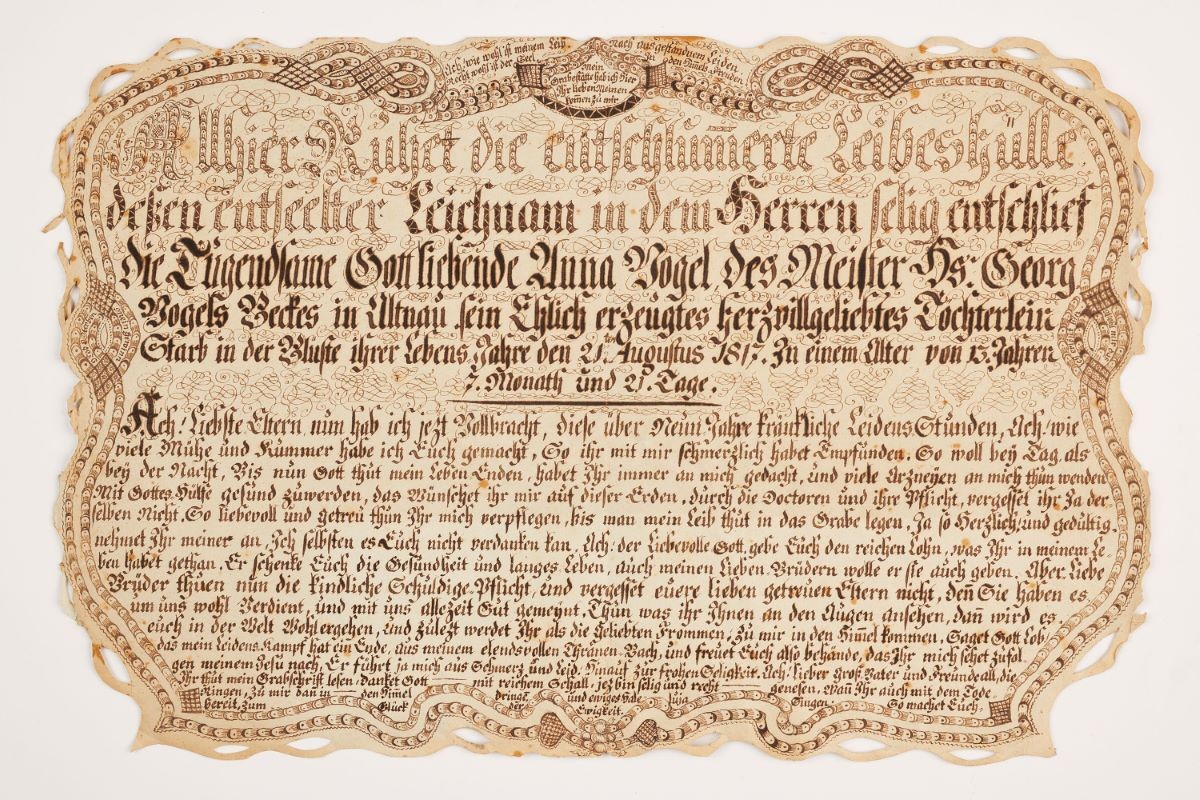 Ach, wie wohl ist meinem Leib Nach ausgestandnem Leiden
Recht wohl ist der Seel In des Himels Freuden
Mein
Grabestätte hab ich Hier
Ihr lieben Meinen
komen zu mir
Allhier Ruhet die entschlumerte Leibeshülle
deßen entseelter Leichnam in dem Herren selig entschlief
die Tugendsame Gottliebende Anna Vogel des Meister Hs: Georg
Vogels Beckes in Altnau sein Ehlich erzeugtes Herzvillgeliebtes Tochterlein
Starb in der Blüste ihrer Lebens Jahre den 21ten Augustus 1817. Zu einem Alter von 13. Jahren
7. Monath und 21. Tage.
Ach! Liebste Eltern, nun hab ich jezt Vollbracht, diese über Neun Jahre kränkliche Leidens Stunden, Ach! wie
viele Mühe und Kummer habe ich Euch gemacht, So ihr mit mir schmerzlich habet Empfunden. So woll bey Tag als
bey der Nacht, Bis nun Gott thut mein Leben Enden, habet Ihr immer an mich gedacht, und viele Arzneyen an mich thun wenden
Mit Gottes Hülfe gesund zuwerden, das Wünschet ihr mir auf dieser Erden, durch die Doctoren und ihre Pflicht, vergesset ihr Ja der
selben Nicht. So liebevoll und getreu thun Ihr mich verpflegen, bis man mein Leib thut in das Grabe legen, Ja so Herzlich! und gedültig
nehmet Ihr meiner an, Ich selbsten es Euch nicht verdanken kan, Ach! der Liebevolle Gott, gebe Euch den reichen Lohn, was Ihr in meinem Le-
ben habet gethan, Er schenke Euch die Gesundheit und langes Leben, auch meinen Lieben Brüdern wolle er sie auch geben. Aber Liebe
Brüder thuen nun die kindliche Schuldige Pflicht, und vergesset euere lieben getreuen Eltern nicht, den Sie haben es
um uns wohl Verdient, und mit uns allezeit Gut gemeynt, Thun was ihr Ihnen an den Augen ansehen, dan wird es
euch in der Welt Wohl ergehen, und zulezt werdet Ihr als die Geliebten Frommen, Zu mir in den Himel kommen, Saget Gott Lob,
das mein Leidens Kampf hat ein Ende, aus meinem elendsvollen Thränen Bach, und freuet Euch also behande, das Ihr mich sehet zufol-
gen meinem Jesu nach, Er führt ja mich aus Schmerz und Leid, Hinauf zur frohen Seligkeit. Ach! Lieber Groß Vater und Freunde all, die
Ihr thut mein Grabschrift lesen, danket Gott mit reichem Schall, jez bin selig und recht genesen. Wan Ihr auch mit dem Tode
Ringen, Zu mir dan in den Himel dringt, und ewiges Hale luja Singen. So wachet Euch,
bereit, zum Glück der Ewigkeit.